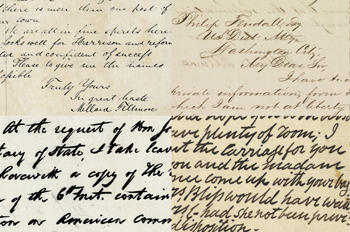 there is more than one post of
town
We are all in fine spirits here
looks well for Harrison and reform
and confident of success
Please to give me the names
possible
Truly Yours
In great haste
Millard Fillmore
Philip Fendall Esq
U.S. Dist. Atty.
Washington City
My Dear Sir
I have
private information, from
which I am not at liberty
At the request of Hon J
tary of State, I take leave
herewith a copy of the
of the 6th Inst. contain
tion on American Com
have plenty of room; I
the Carriage for you
you and the Madam
will come up with your bag
Bliss would have
had she not been previ
disposition.